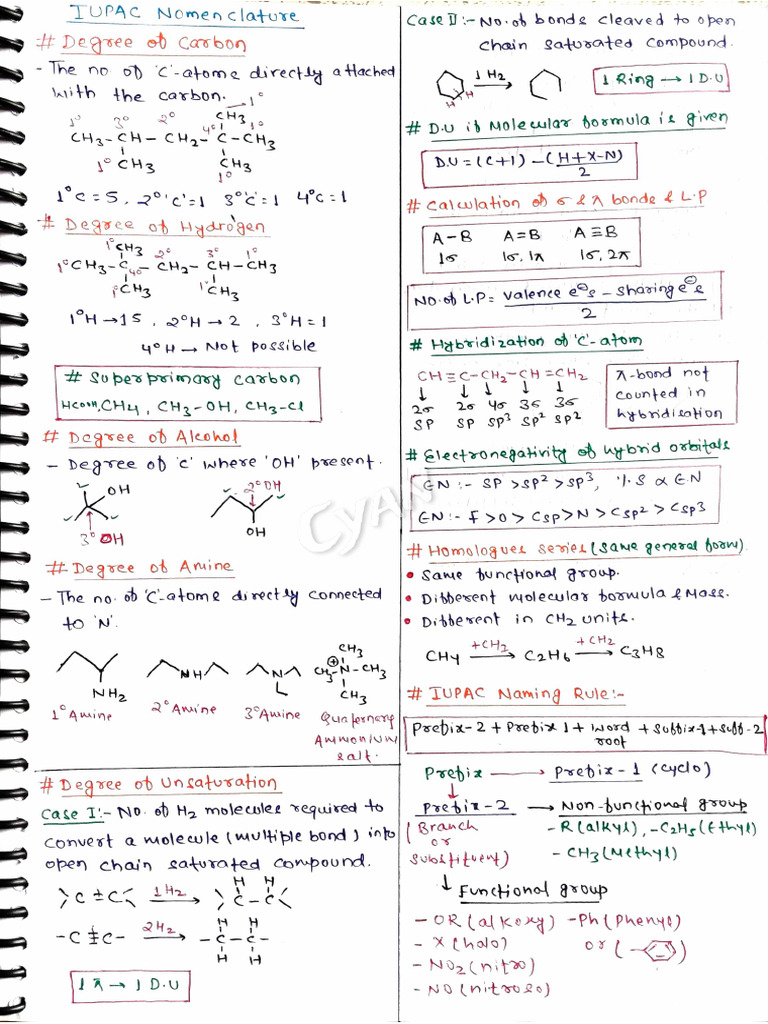 IUPAC Nomenclature
# Degree of Carbon
- The no of 'C'-atoms directly attached
with the carbon.
1°
CH3
1° 3° 2° 4° 1°
CH3-CH-CH2-C-CH3
1° CH3 CH3
1°
1°C=5, 2°'C'=1 3°C'=1 4°C=1
# Degree of Hydrogen
1°
CH3 2° 3° 1°
1°CH3-C-CH2-CH-CH3
4°
1°CH3 1°CH3
1°H→15, 2°H→2, 3°H=1
4°H → Not possible
# Superprimary carbon
HCOOH, CH4, CH3-OH, CH3-Cl
# Degree of Alcohol
- Degree of 'C' where 'OH' present.
OH
3° OH
2° OH
OH
# Degree of Amine
- The no. of 'C'-atoms directly connected
to 'N'.
NH2
1° Amine
NH
2° Amine
N
3° Amine
CH3
⊕
CH3-N-CH3
CH3
Quaternary
Ammonium
salt.
# Degree of Unsaturation
Case I:- No. of H2 molecules required to
convert a molecule (multiple bond) into
open chain saturated compound.
H H
C=C 1H2→ C-C
H H
-C≡C- 2H2→ -C-C-
H H
1π→1 D.U
Case II:- No. of bonds cleaved to open
chain saturated compound.
H H 1H2→
1 Ring → 1 D.U
# D.U if Molecular formula is given
D.U = (C+1) - (H+X-N)
2
# Calculation of σ & π bonds & L.P
A-B A=B A≡B
1σ 1σ, 1π 1σ, 2π
No. of L.P = valence e⊖s - sharing e⊖s
2
# Hybridization of 'C'-atom
CH≡C-CH2-CH=CH2
2σ 2σ 4σ 3σ 3σ
SP SP SP3 SP2 SP2
π-bond not
counted in
hybridisation
# Electronegativity of hybrid orbitals
EN :- SP > SP2 > SP3, %S ∝ E.N
EN :- F > O > Csp > N > Csp2 > Csp3
# Homologues series (same general form)
• Same functional group.
• Different molecular formula & Mass.
• Different in CH2 units.
CH4 +CH2→ C2H6 +CH2→ C3H8
# IUPAC Naming Rule:-
Prefix-2 + Prefix 1 + word + suffix-1 + suff-2
root
Prefix → Prefix-1 (cyclo)
↓
Prefix-2 → Non-functional group
(Branch
or
substituent)
- R (alkyl), -C2H5 (Ethyl)
- CH3 (Methyl)
↓ Functional group
- OR (alkoxy) -Ph (Phenyl)
- X (halo) or (-)
- NO2 (nitro)
- NO (nitroso)
CyAN